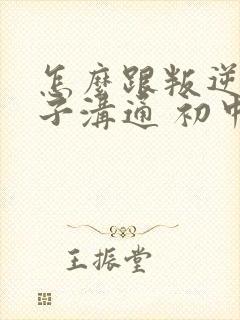 怎麼跟叛逆
子溝通 初中
王振堂